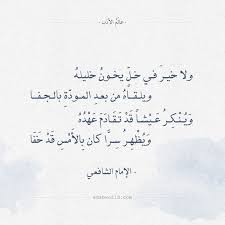 - عالم الأدب -
ولا خيرَ في خلٍّ يخونُ خليلهُ
ويلقاهُ من بعدِ المودّةِ بالجفا
وَيُنْكِرُ عَيْشاً قَدْ تَقَادَمَ عَهْدُهُ
وَيُظْهِرُ سِرًّا كان بِالأَمْسِ قَدْ خَفَا
- الإمام الشافعي